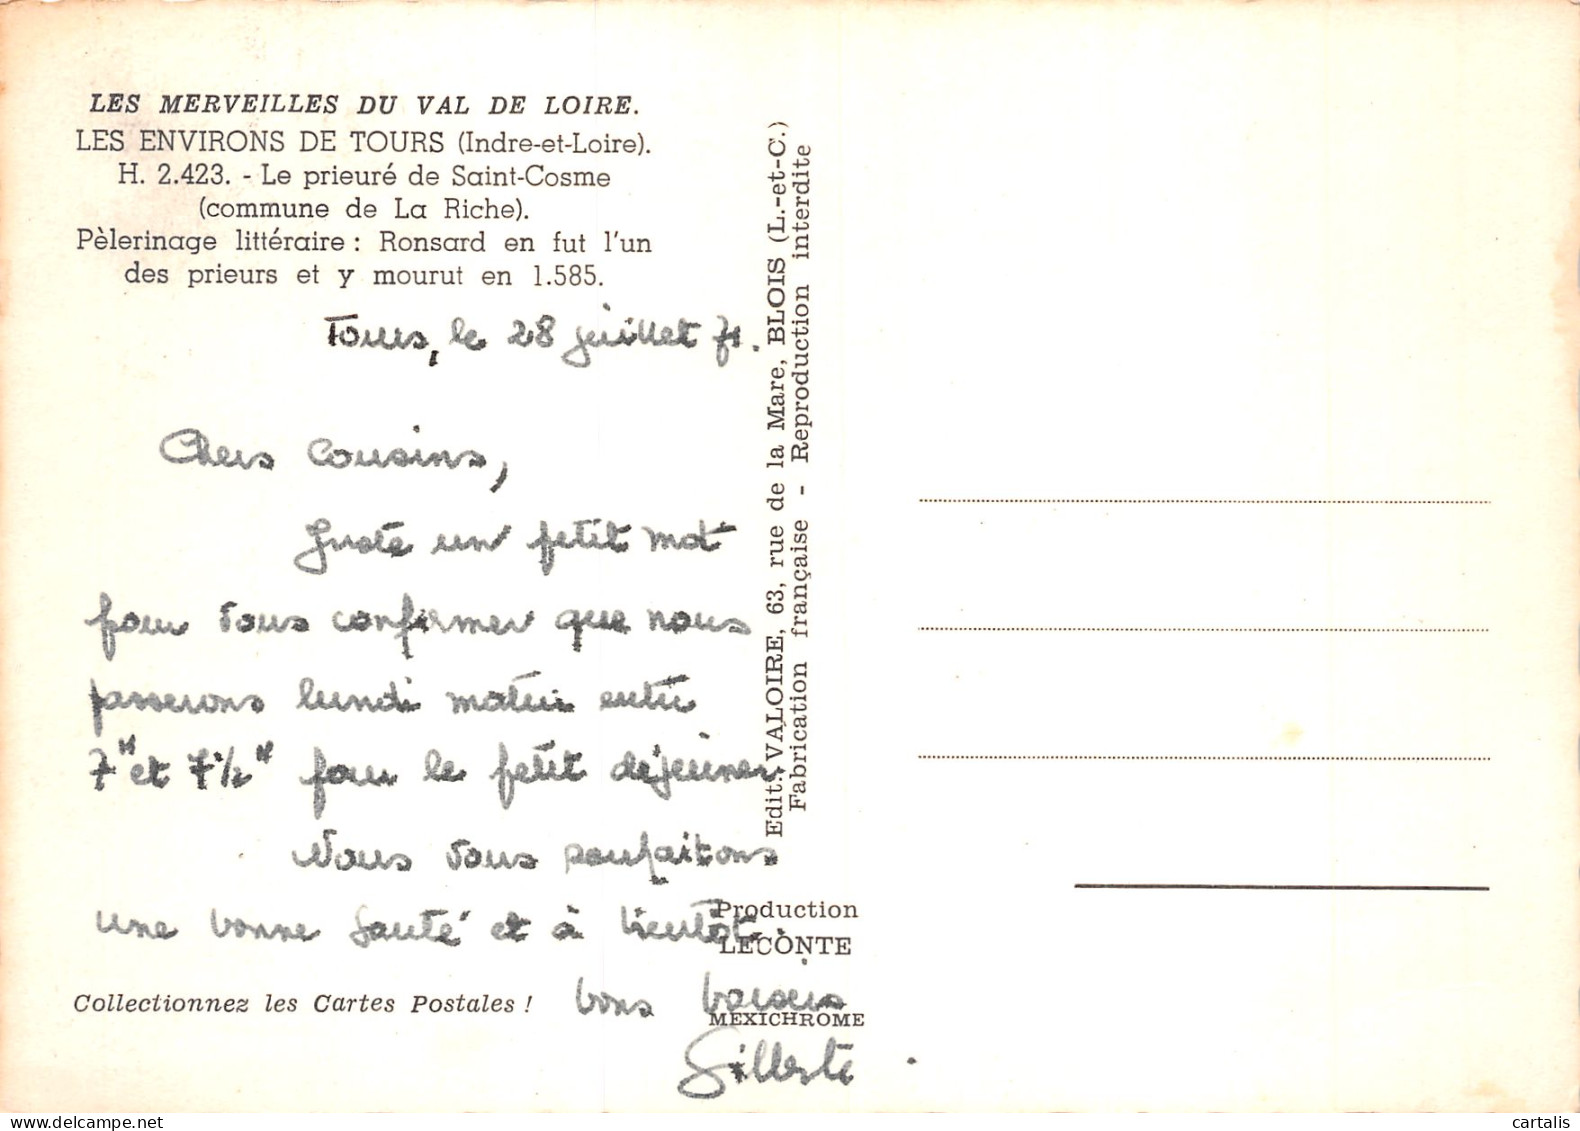 LES MERVEILLES DU VAL DE LOIRE.
LES ENVIRONS DE TOURS (Indre-et-Loire).
H. 2.423. - Le prieuré de Saint-Cosme
(commune de La Riche).
Pèlerinage littéraire : Ronsard en fut l'un
des prieurs et y mourut en 1.585.
Tours, le 28 juillet 71.
Chers Cousins,
Juste un petit mot
pour vous confirmer que nous
passerons lundi matin entre
7H et 7 1/2 H pour le petit déjeuner.
Nous vous souhaitons
une bonne santé et à bientôt.
bons baisers
Collectionnez les Cartes Postales !
Edit. VALOIRE, 63, rue de la Mare, BLOIS (L.-et-C.)
Fabrication française - Reproduction interdite
Production
LECONTE
MEXICHROME
cartalis